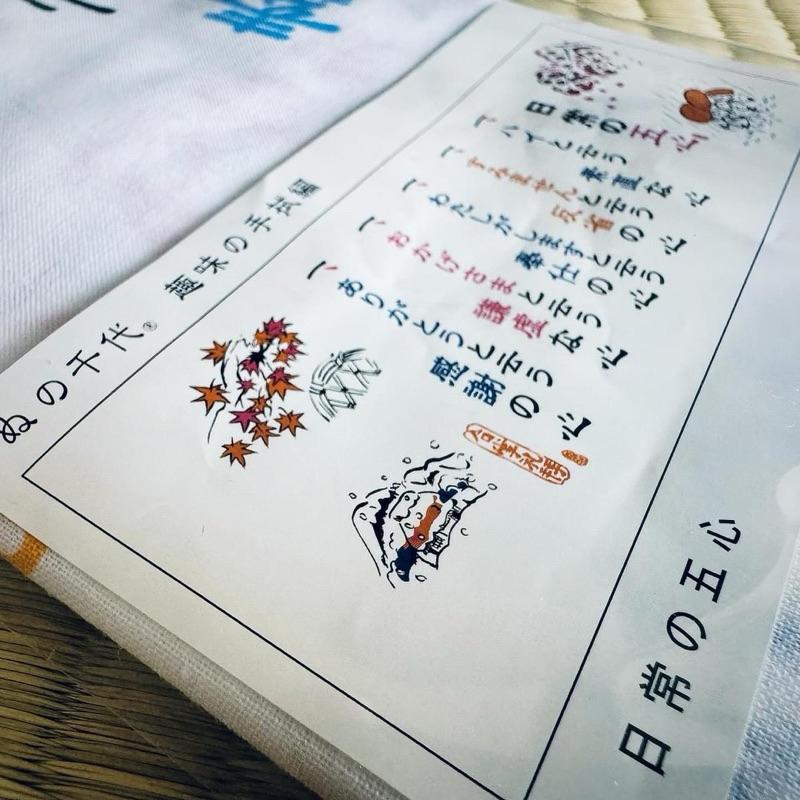 日常の五心
一、ハイと言う
素直な心
一、すみませんと言う
反省の心
一、わたしがしますと言う
奉仕の心
一、おかげさまと言う
謙虚な心
一、ありがとうと言う
感謝の心
日常の五心
ぬの千代® 趣味の手拭